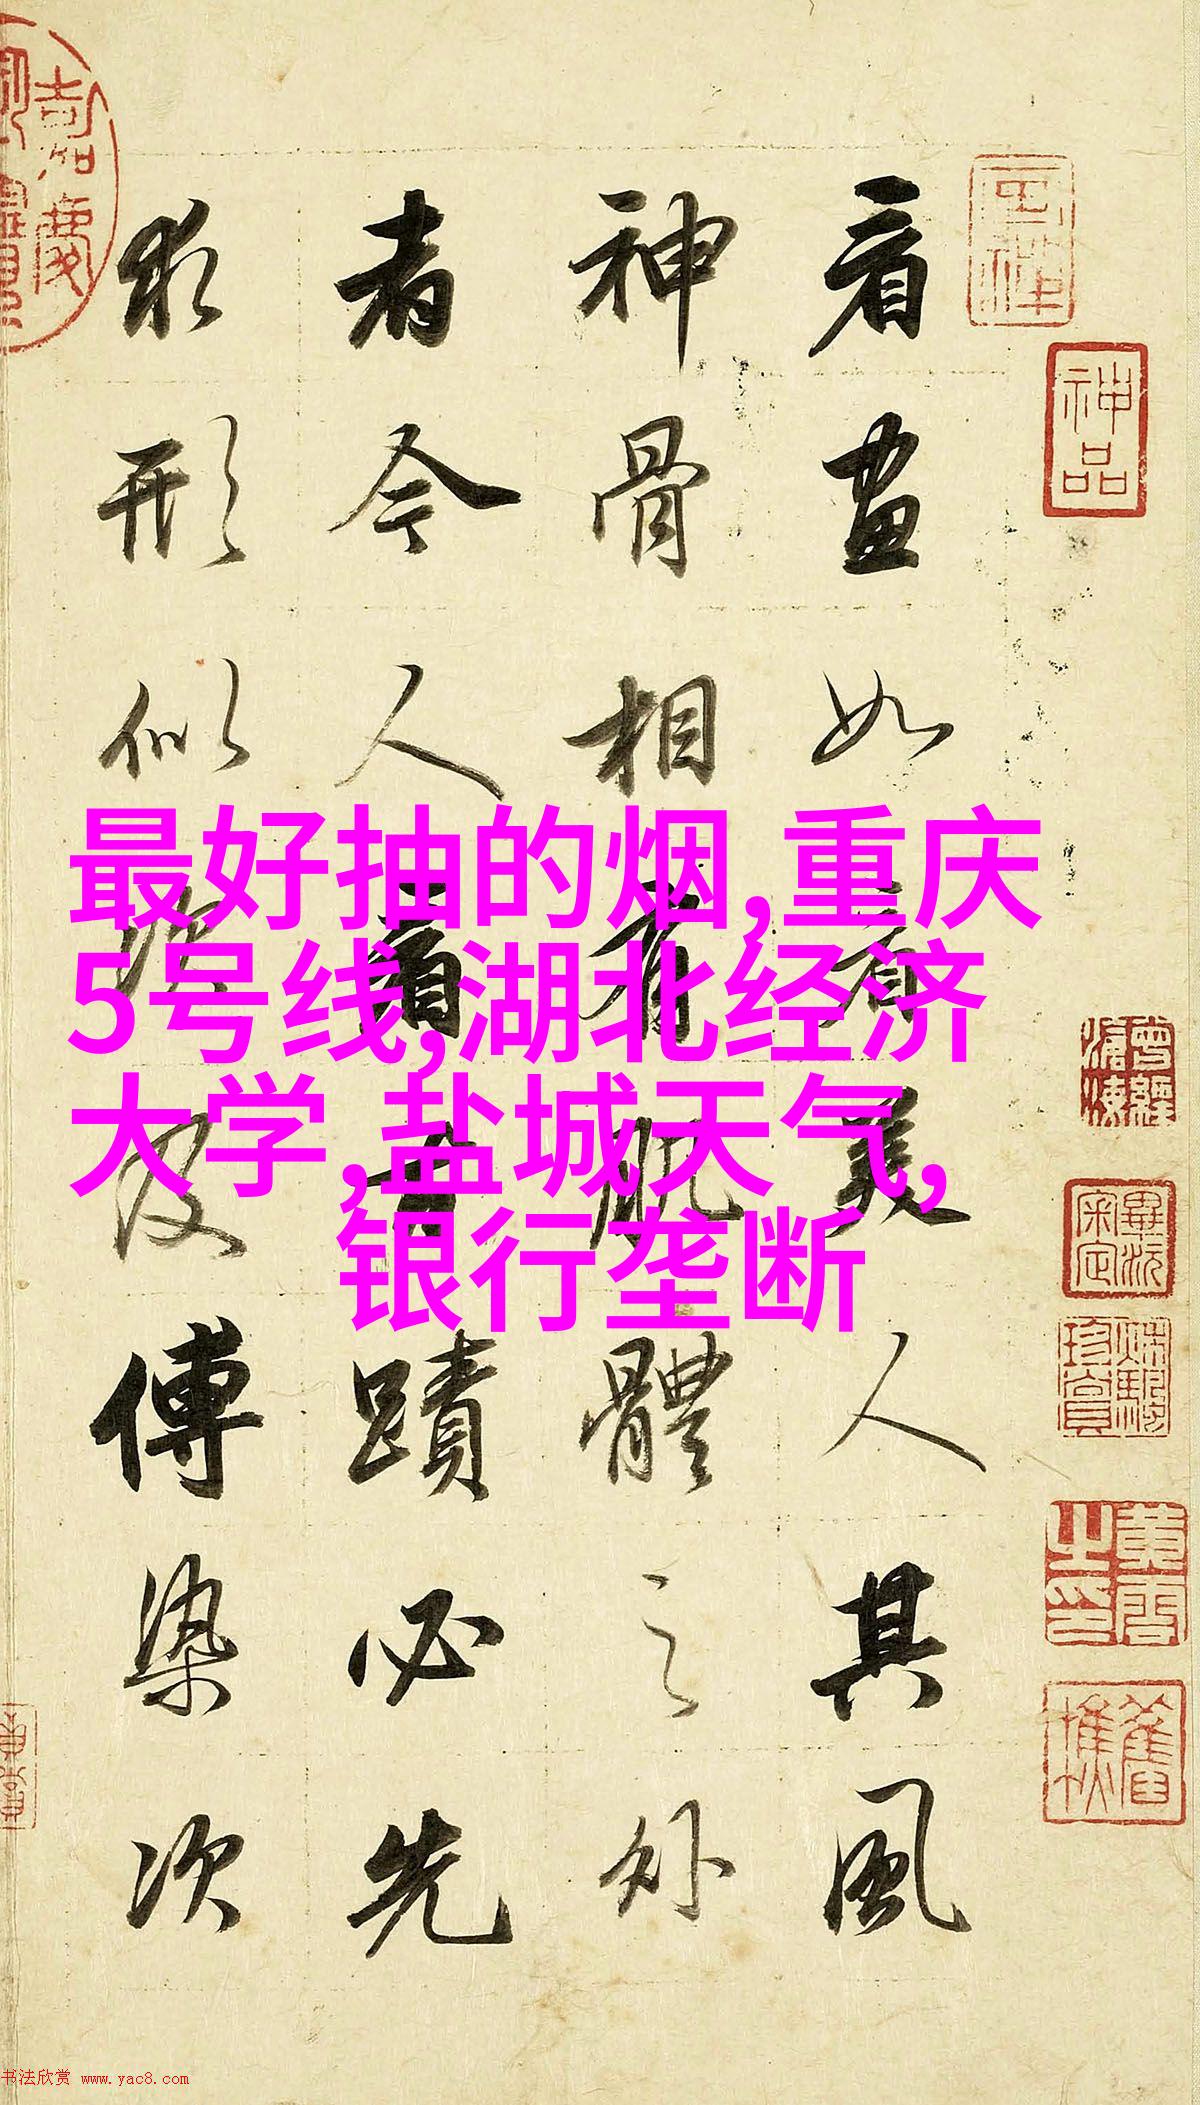 看畫如看美人其風
神骨相有肌體之外
者今人看古蹟必先
求形似次及傅染次
最好抽的烟,重庆
5号线,湖北经济
大学,盐城天气,
银行垄断
神品
嘉慶
书法欣赏 www.yac8.com